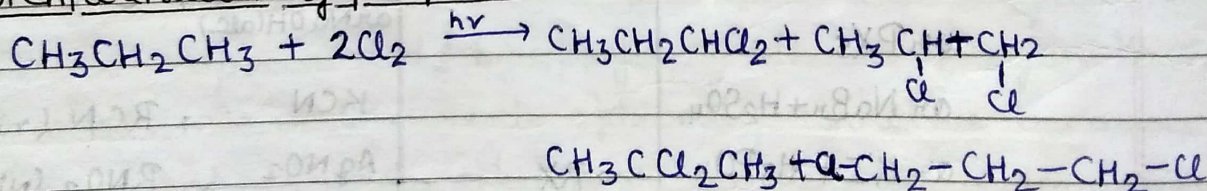 CH3CH2CH3 + 2Cl2 hv→ CH3CH2CHCl2 + CH3 CH+CH2
Cl Cl
CH3CCl2CH3 + Cl-CH2-CH2-CH2-Cl